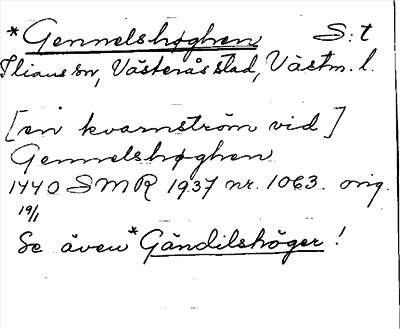 *Gennelshøghen S:t
Ilians sn, Västerås stad, Västm. l.
[en kvarnström vid]
Gennelshøghen
1440 SMR 1937 nr. 1063. orig.
19/1
Se även *Gändilshöger!